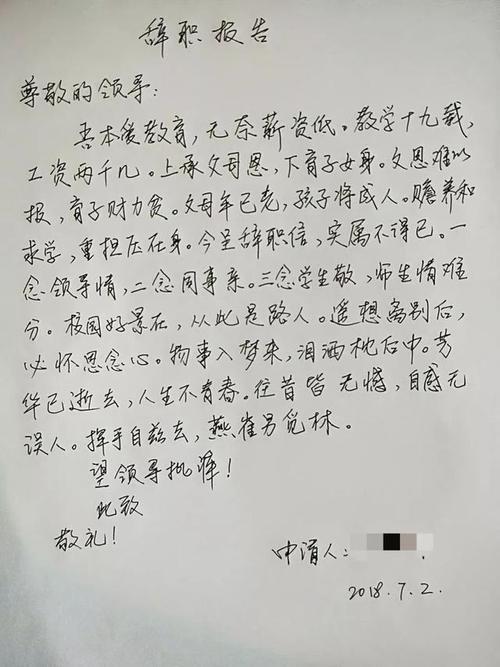 辞职报告
尊敬的领导:
吾本爱教育,无奈薪资低。教学十九载,
工资两千几。上承父母恩,下育子女身。父恩难以
报,育子财力贫。父母年已老,孩子将成人。赡养和
求学,重担压在身。今呈辞职信,实属不得已。一
念领导情,二念同事亲。三念学生敬,师生情难
分。校园好景在,从此是路人。遥想离别后,
必怀思念心。物事入梦来,泪洒枕巾中。芳
华已逝去,人生不青春。往昔皆无憾,自感无
误人。挥手自兹去,燕雀另觅林。
望领导批准!
此致
敬礼!
申请人:
2018.7.2.